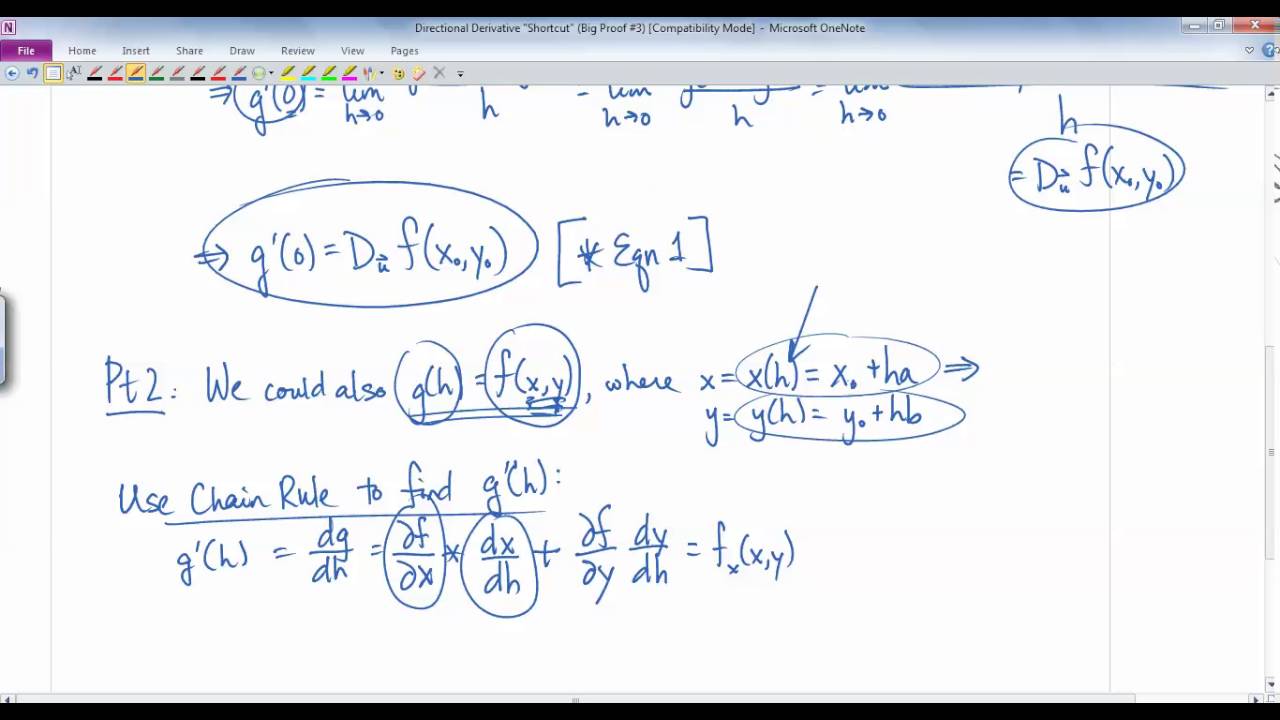 Directional Derivative "Shortcut" (Big Proof #3) [Compatibility Mode] - Microsoft OneNote
File Home Insert Share Draw Review View Pages
⇒ g'(0) = lim h→0 h = lim h→0 h = lim h→0 h
= D_u⃗ f(x₀,y₀)
⇒ g'(0) = D_u⃗ f(x₀,y₀) [* Eqn 1]
Pt 2: We could also g(h) = f(x,y), where x = x(h) = x₀ + ha ⇒
y = y(h) = y₀ + hb
Use Chain Rule to find g'(h):
g'(h) = dg/dh = ∂f/∂x * dx/dh + ∂f/∂y dy/dh = f_x(x,y)